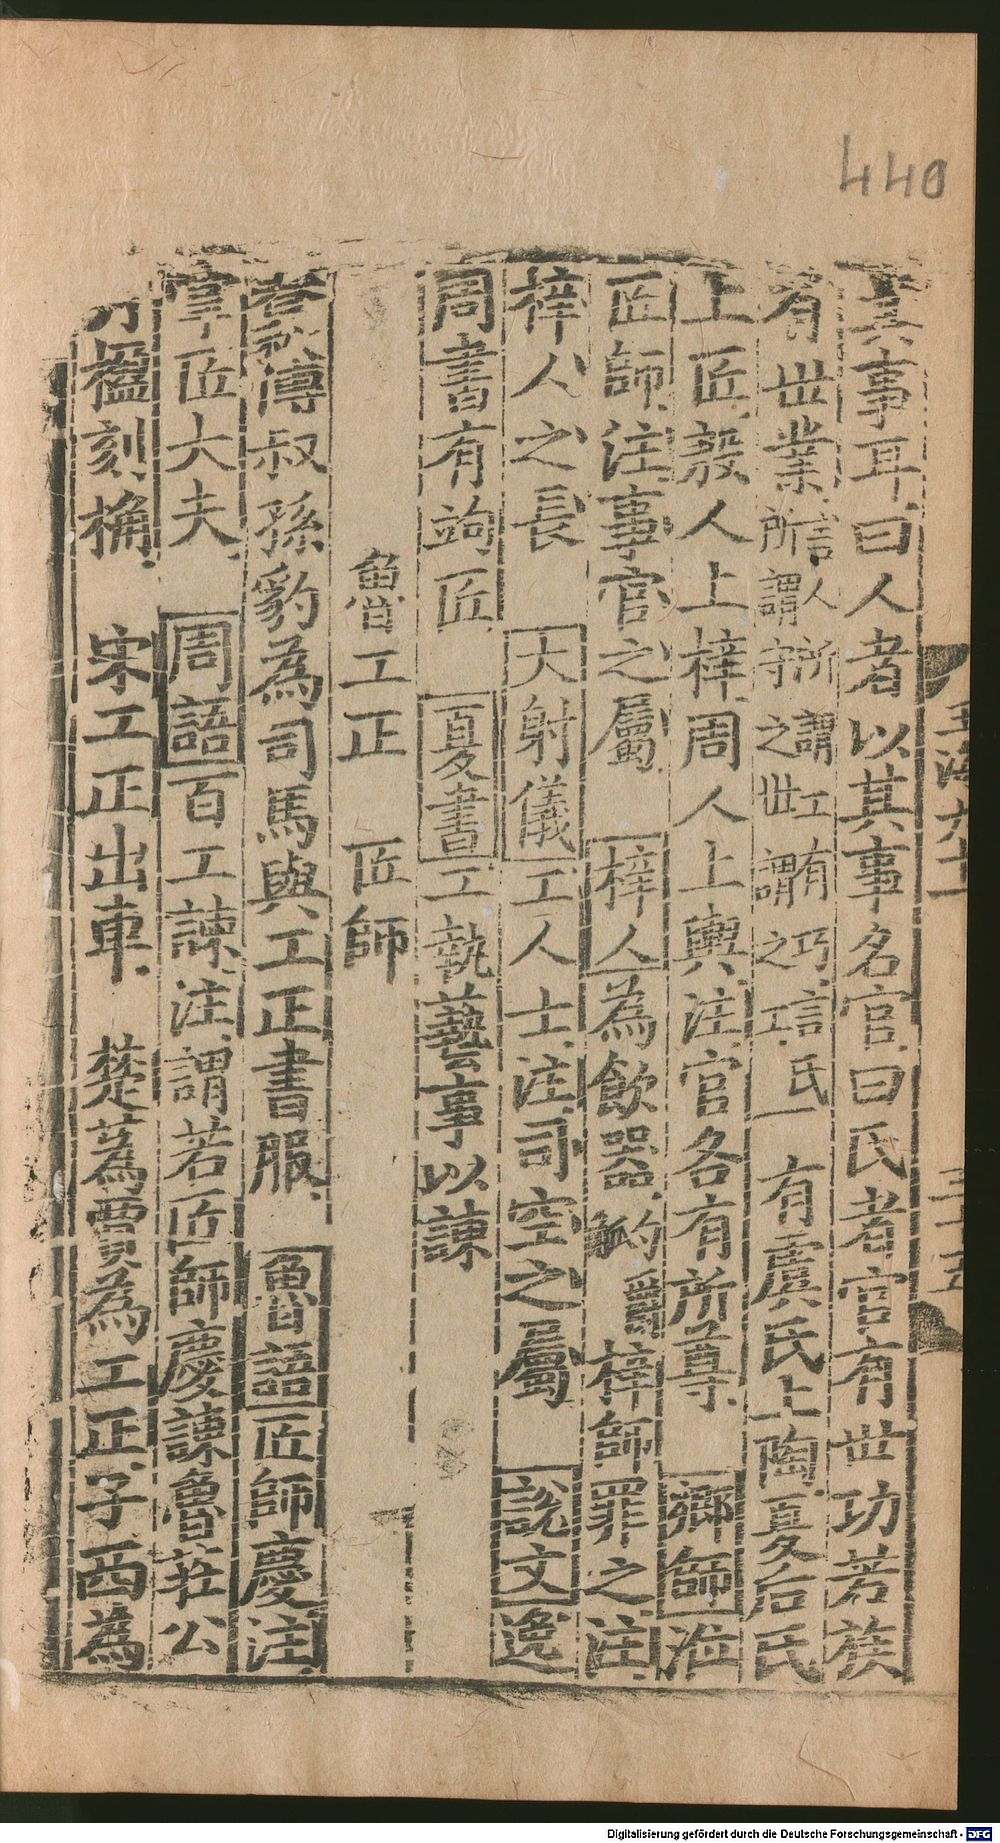 440
其事耳曰人者以其事名官曰氏者官有世功若族
有世業言人所謂工有巧言氏
所謂守之世謂之工
有虞氏上陶夏后氏
上匠殷人上梓周人上輿注官各有所尊 鄉師涖
匠師注事官之屬 梓人為飲器勺爵觚梓師罪之注
梓人之長 大射儀工人士注司空之屬 說文逸
周書有竘匠 夏書工執藝事以諫
魯工正 匠師
春秋傳叔孫豹為司馬與工正書服 魯語匠師慶注
掌匠大夫 周語百工諫注謂若匠師慶諫魯莊公
丹楹刻桷 宋工正出車 楚蒍賈為工正子西為
玉海
Digitalisierung gefördert durch die Deutsche Forschungsgemeinschaft - DFG